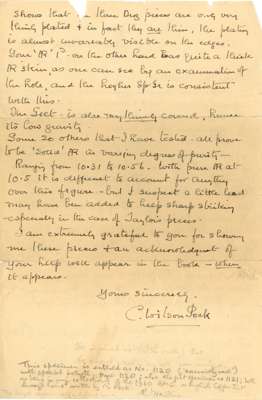 shows that in these Dug pieces are only very
thinly plated & in fact they are thin, the plating
is almost invariably visible on the edges.
Your AR "P" on the other hand was quite a thick
AR skin as one can see by an examination of
the hole, and the higher Sp. Gr. is consistent
with this.
The Sect is also very thinly covered, hence
its low gravity.
Some 20 others that I have tested all prove
to be 'Solid' AR in varying degrees of purity —
Ranging from 10.31 to 10.56. With pure AR at
10.5 it is difficult to account for anything
over this figure - but I suspect a little lead
may have been added to keep sharp striking
- especially in the case of Taylor's pieces -
I am extremely grateful to you for showing
me these pieces & an acknowledgment of
your help will appear in the book — when
it appears.
Yours sincerely,
C. Wilson Peck
This specimen is entered as No. 1120